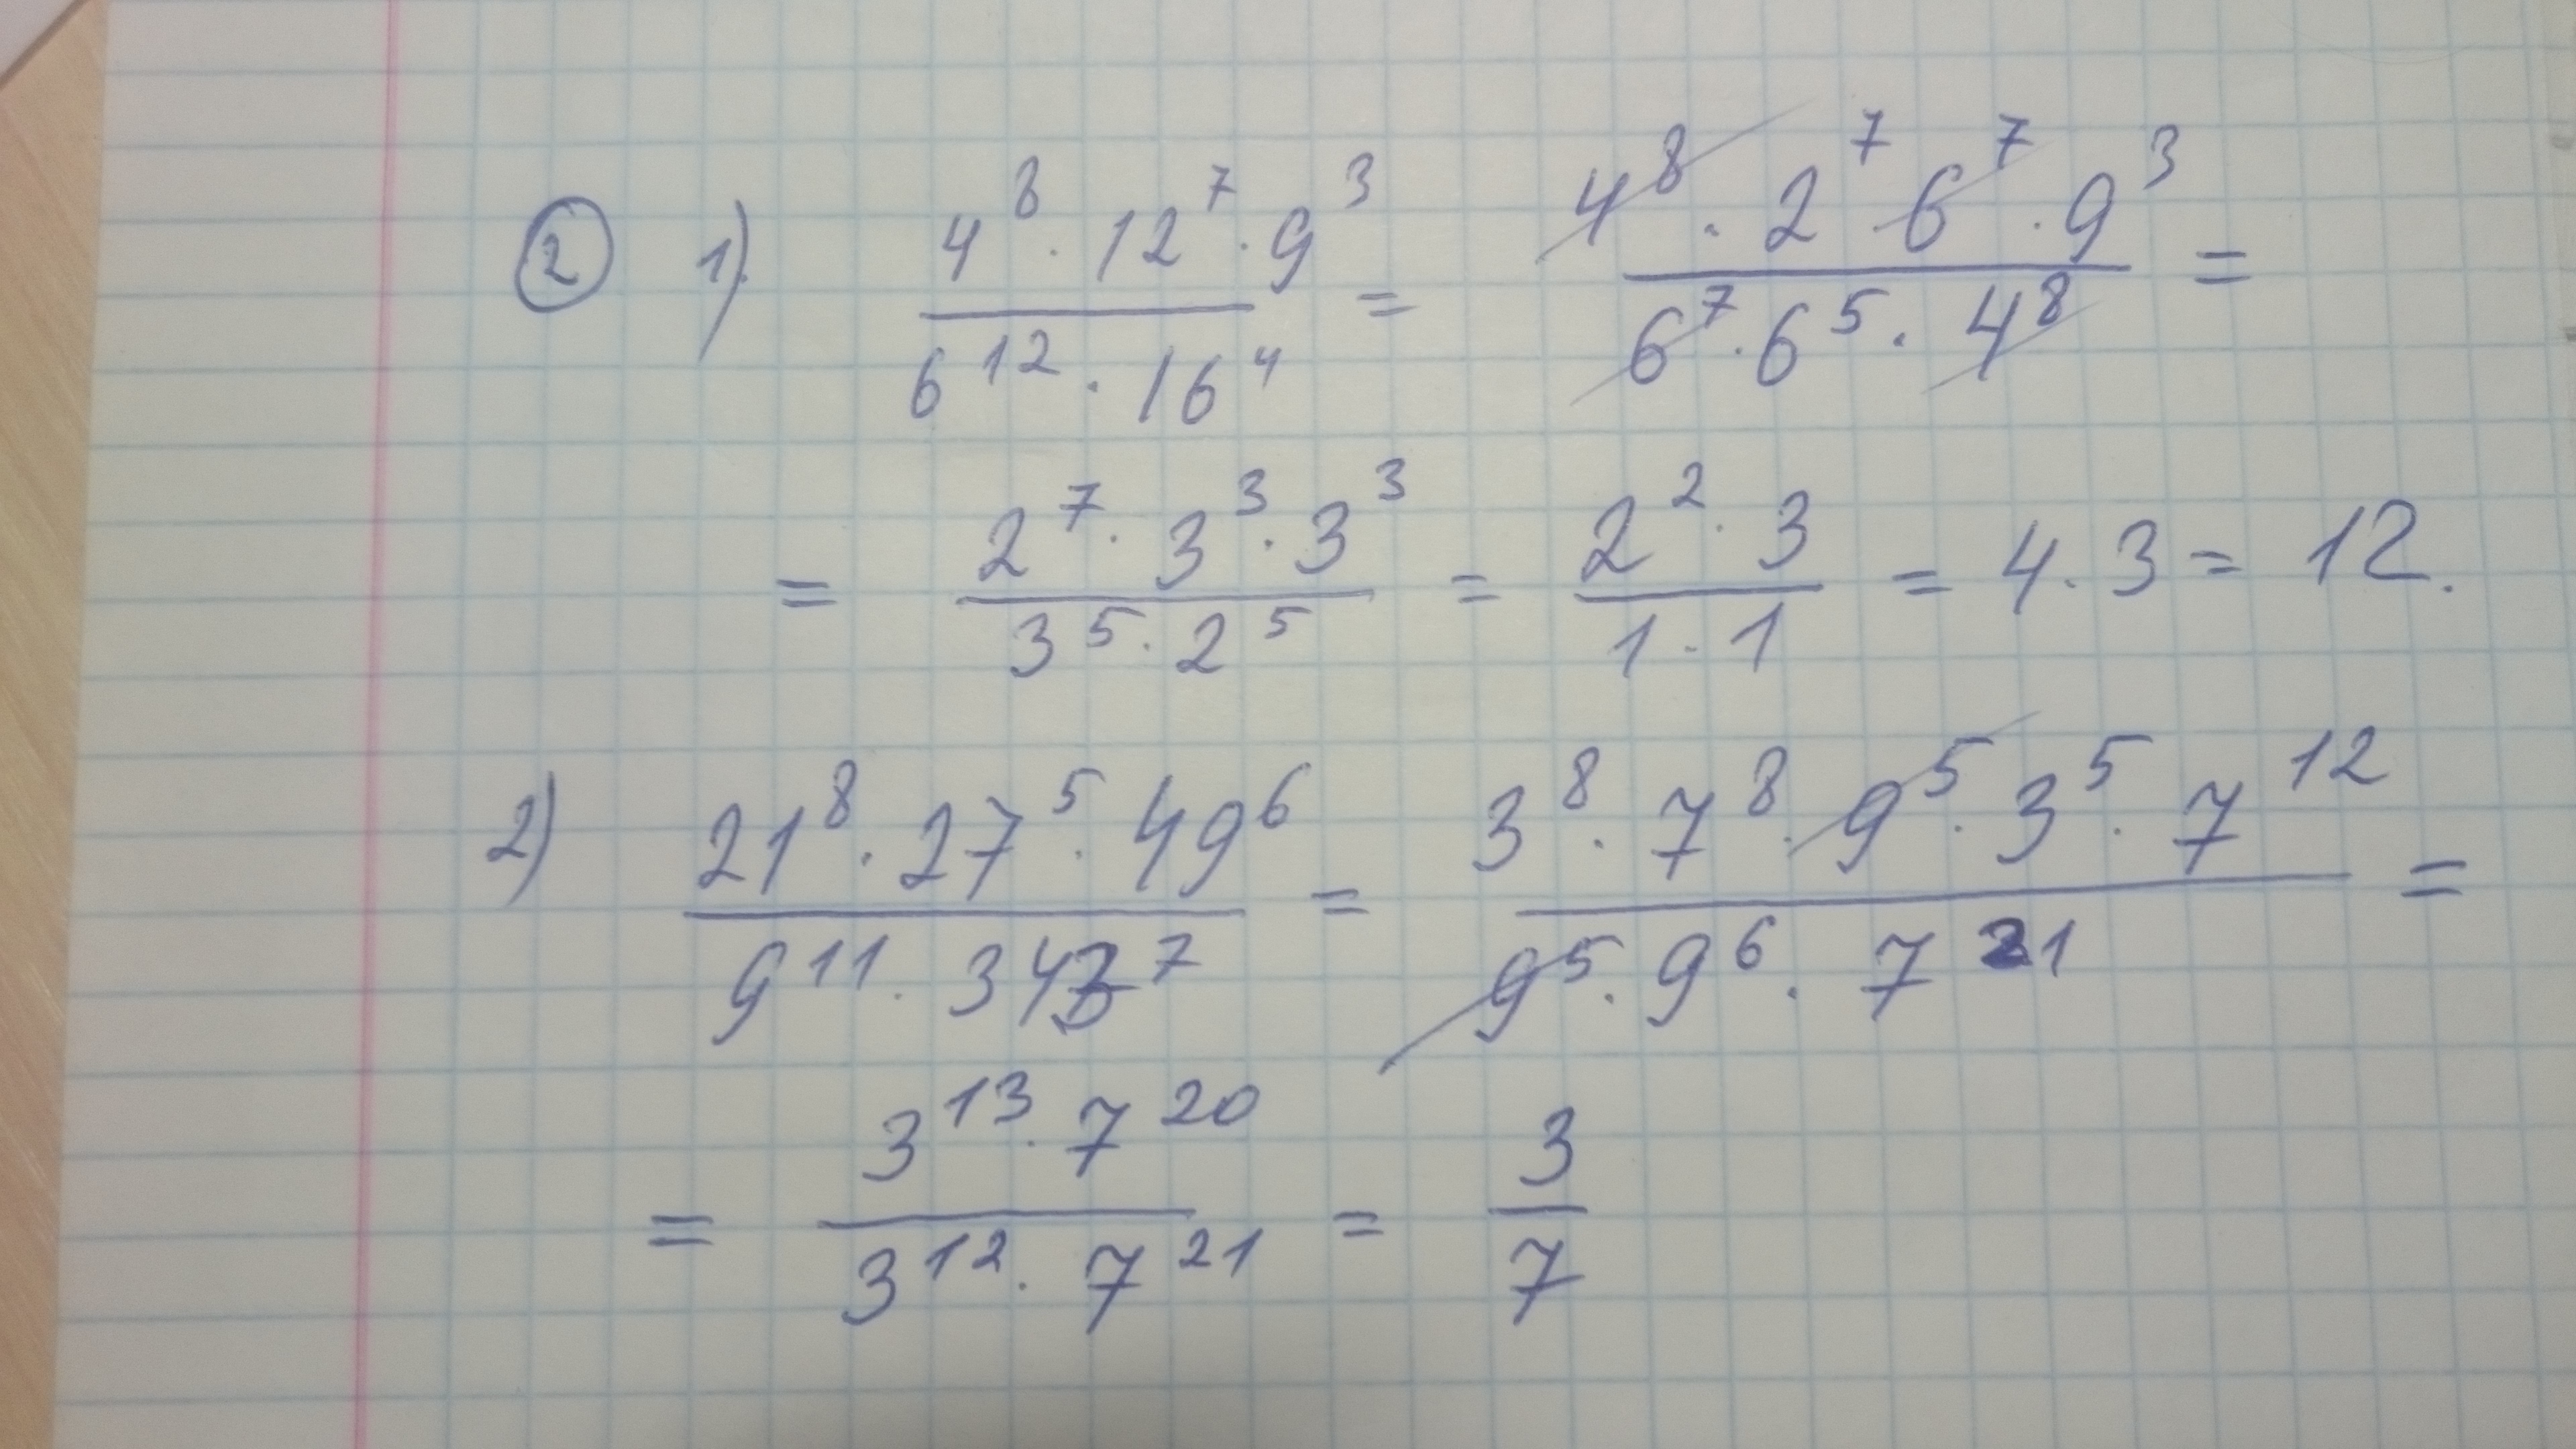 ② 1) 4⁸ · 12⁷ · 9³ / 6¹² · 16⁴ = 4⁸ · 2⁷ 6⁷ · 9³ / 6⁷ · 6⁵ · 4⁸ =
= 2⁷ · 3³ · 3³ / 3⁵ · 2⁵ = 2² · 3 / 1 · 1 = 4 · 3 = 12.
2) 21⁸ · 27⁵ · 49⁶ / 9¹¹ · 343⁷ = 3⁸ · 7⁸ · 9⁵ · 3⁵ · 7¹² / 9⁵ · 9⁶ · 7²¹ =
= 3¹³ · 7²⁰ / 3¹² · 7²¹ = 3 / 7